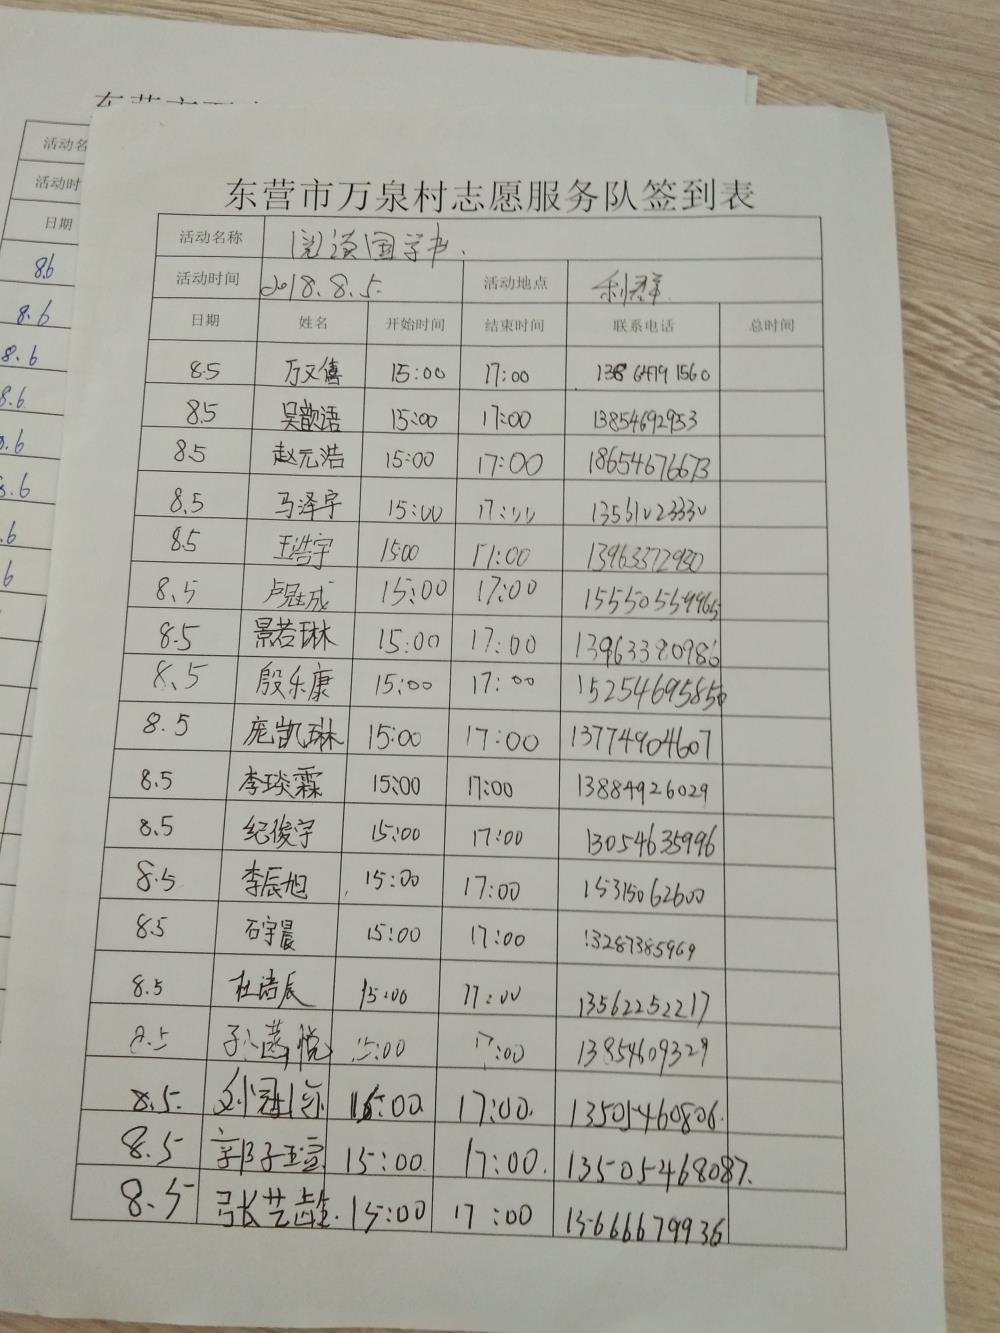 东营市万泉村志愿服务队签到表
活动名称 阅读国学书.
活动时间 2018.8.5 活动地点 利群
日期 姓名 开始时间 结束时间 联系电话 总时间
8.5 万又僖 15:00 17:00
8.5 吴歆语 15:00 17:00 13854692953
8.5 赵元浩 15:00 17:00 18654676673
8.5 马泽宇 15:00 17:00
8.5 王浩宇 15:00 17:00 13963372930
8.5 卢冠成 15:00 17:00 15550559965
8.5 景若琳 15:00 17:00 13963380986
8.5 殷乐康 15:00 17:00 15254695850
8.5 庞凯琳 15:00 17:00 13774904607
8.5 李琰霖 15:00 17:00 13884926029
8.5 纪俊宇 15:00 17:00 13054635996
8.5 李辰旭 15:00 17:00 15315062600
8.5 石宇晨 15:00 17:00 13287385969
8.5 杜诺辰 15:00 17:00 13562252217
8.5 15:00 17:00 13854609329
8.5. 15:00 17:00. 13505460806.
8.5 郭子瑄 15:00. 17:00. 13505468087.
8.5 张艺龄. 15:00 17:00 15666679936
活动名
活动时
日期
8.6
8.6
8.6
8.6
8.6
8.6
.6
6